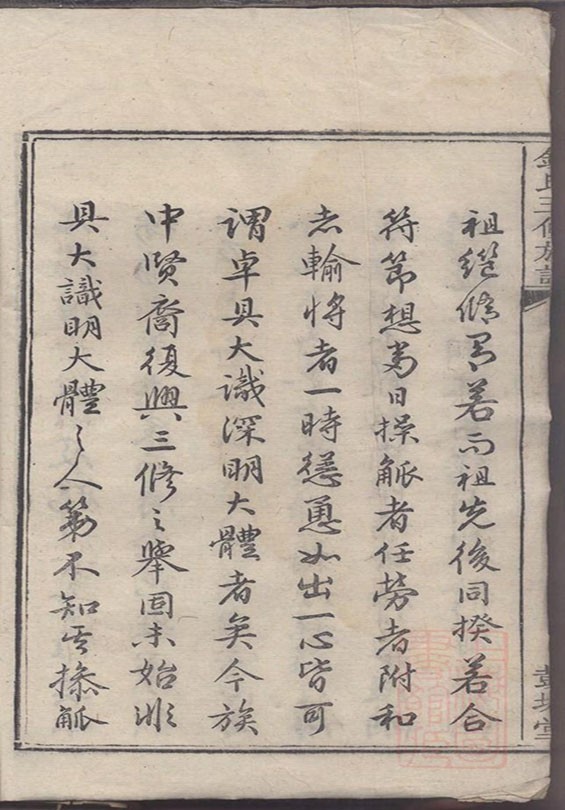 氏三修族譜
彭城堂
祖繼脩若祖先後同揆若合
符節想當日操觚者任勞者附和
者輸將者一時慫恿如出一心皆可
謂卓具大識深明大體者矣今族
中賢裔復興三修之舉固未始非
具大識明大體之人第不知其操觚